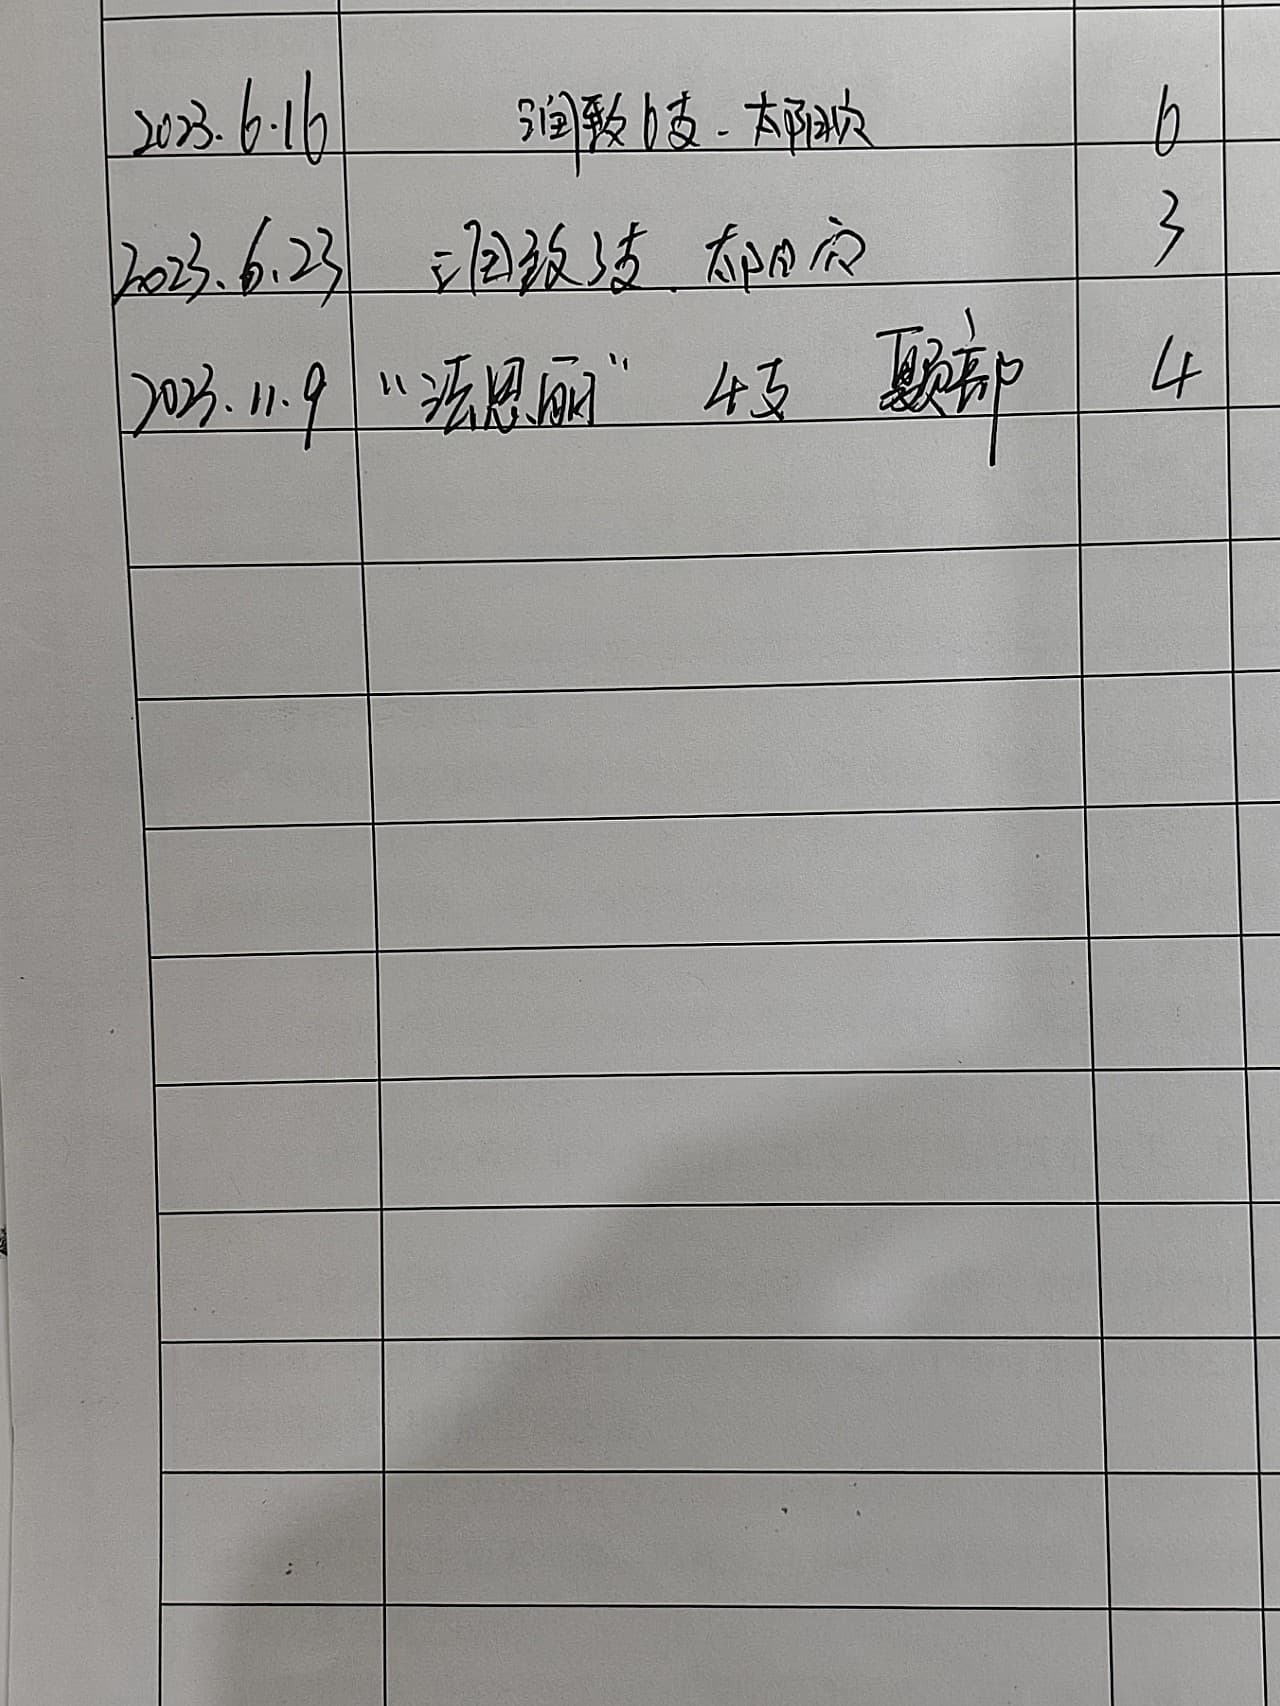 2023.6.16 润致6支-太阳穴 6
2023.6.23 润致3支.太阳穴 3
2023.11.9 “法思丽” 4支 颞部 4